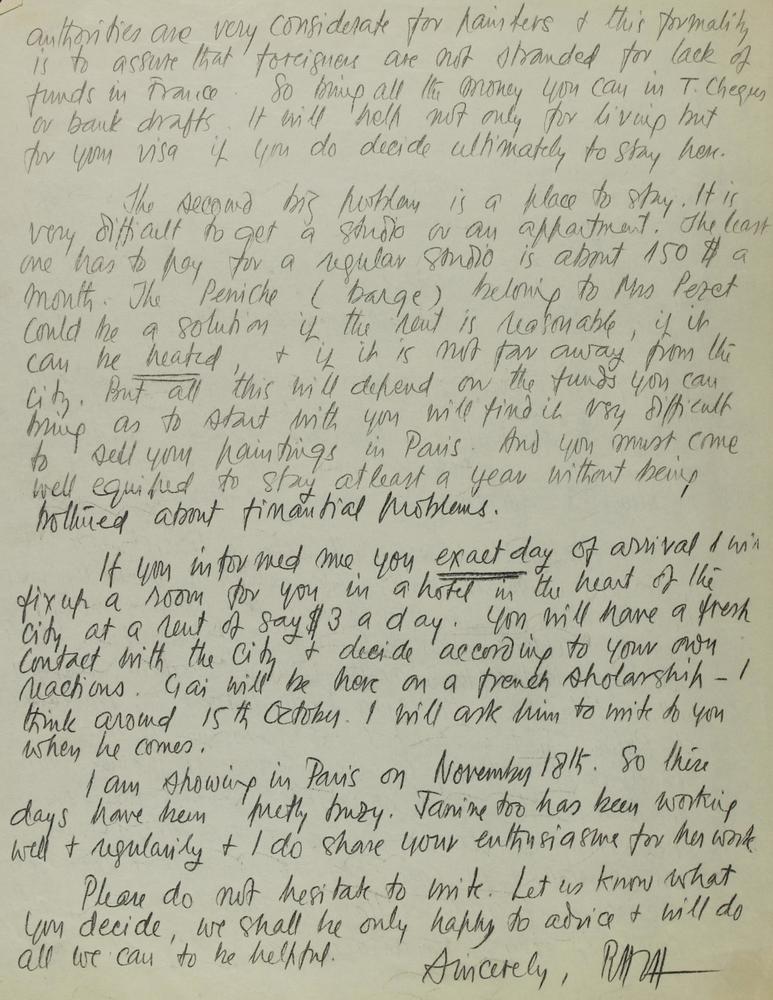 authorities are very considerate for painters & this formality
is to assure that foreigners are not stranded for lack of
funds in France. So bring all the money you can in T. Cheques
or bank drafts. It will help not only for living but
for your visa if you do decide ultimately to stay here.
The second big problem is a place to stay. It is
very difficult to get a studio or an appartment. The least
one has to pay for a regular studio is about 150 $ a
month. The Peniche (barge) belonging to Mrs Pezet
could be a solution if the rent is reasonable, if it
can be heated, & if it is not far away from the
city. But all this will depend on the funds you can
bring as to start with you will find it very difficult
to sell your paintings in Paris. And you must come
well equiped to stay atleast a year without being
bothered about finantial problems.
If you informed me you exact day of arrival I will
fix up a room for you in a hotel in the heart of the
city at a rent of say $3 a day. You will have a fresh
contact with the city & decide according to your own
reactions. Gai will be here on a french sholarship – I
think around 15th October. I will ask him to write to you
when he comes.
I am showing in Paris on November 18th. So these
days have been pretty buzy. Janine too has been working
well & regularily & I do share your enthusiasme for her work
Please do not hesitate to write. Let us know what
you decide, we shall be only happy to advice & will do
all we can to be helpful.
Sincerely,